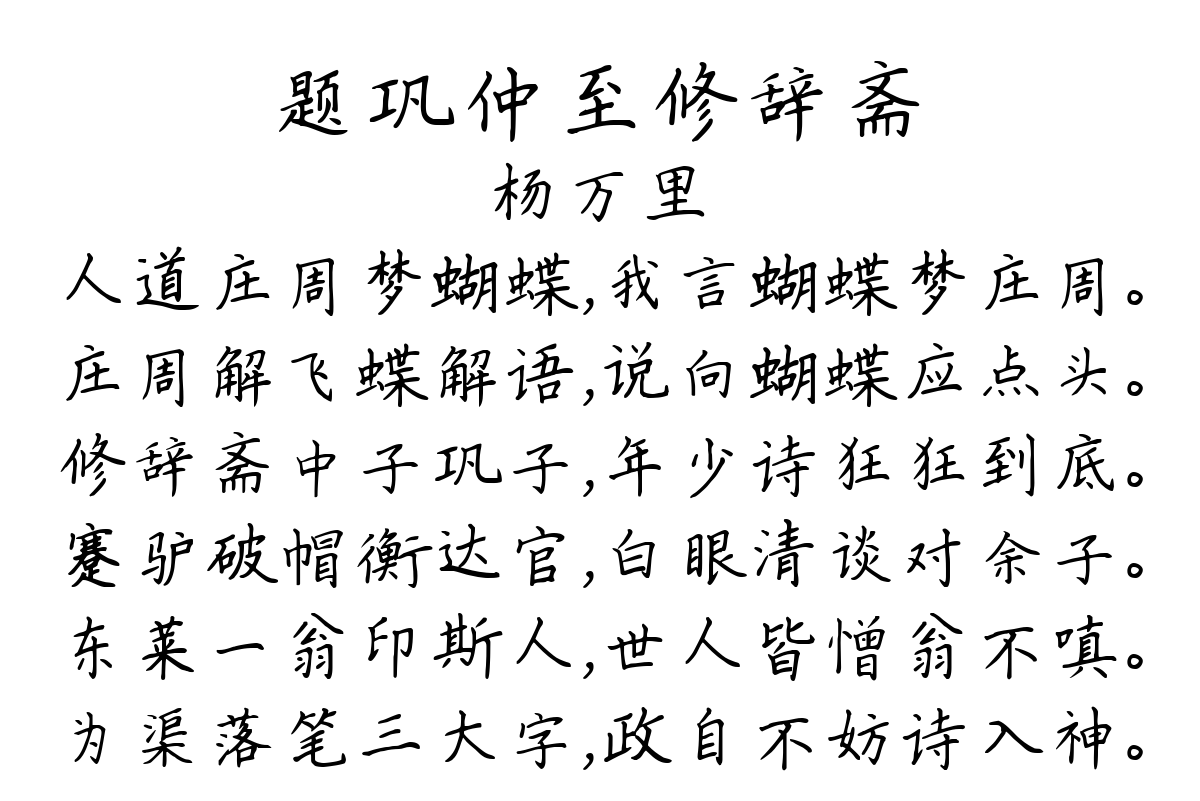 题巩仲至修辞斋
杨万里
人道庄周梦蝴蝶,我言蝴蝶梦庄周。
庄周解飞蝶解语,说向蝴蝶应点头。
修辞斋中子巩子,年少诗狂狂到底。
蹇驴破帽衡达官,白眼清谈对余子。
东莱一翁印斯人,世人皆憎翁不嗔。
为渠落笔三大字,政自不妨诗入神。